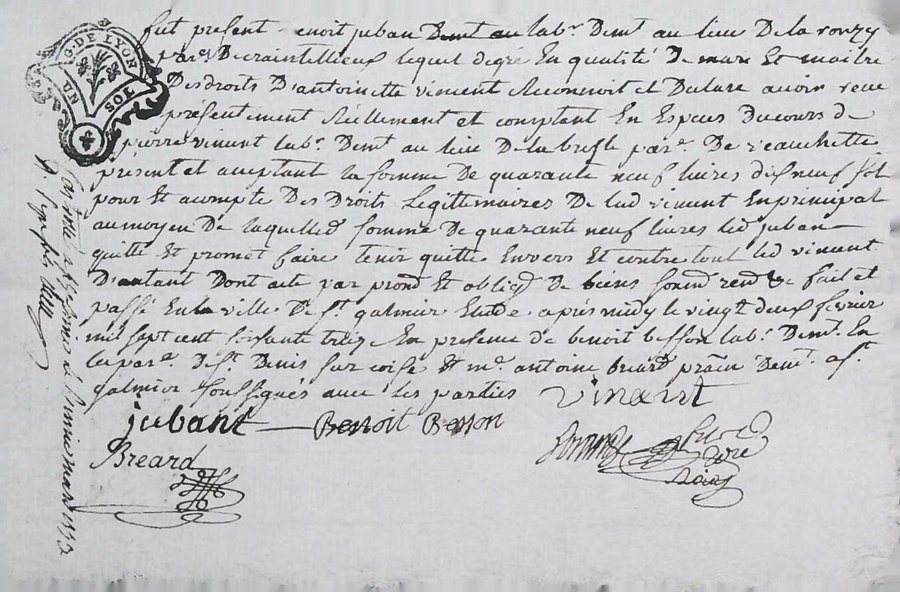 G. DE LYON
SOL
fut present enoit juban Demt au labr. Demt. au lieu De la ronzy
par.e De craintellieux lequel degré En qualité De mary Et maitre
Des droits D'antoinette vincent Reconnoit et Declare avoir receu
présentement Réellement et comptant En Especes Du cours de
pierre vincent labr. Demt au lieu De la par.e De veauchette
présent et aceptant la somme De quarante neuf livres dix neuf sol
pour Et acompte Des Droits Legittimaires De lad vincent En principal
au moyen De laquelle d somme De quarante neuf livres led juban
quitte Et promet faire tenir quitte Envers Et contre tout led vincent
D'autant Dont acte par promd Et obligd De biens soumd rend & fait et
passé En la ville De St. galmier Etude après midy le vingt deux février
mil sept cent soixante treize En presence de benoit besson labr. Demt. En
la par.e De St. Denis sur coise Et mr. antoine breard praen Demt. a St.
galmier soussignés avec les parties vincent
jubant Benoit Besson
Breard